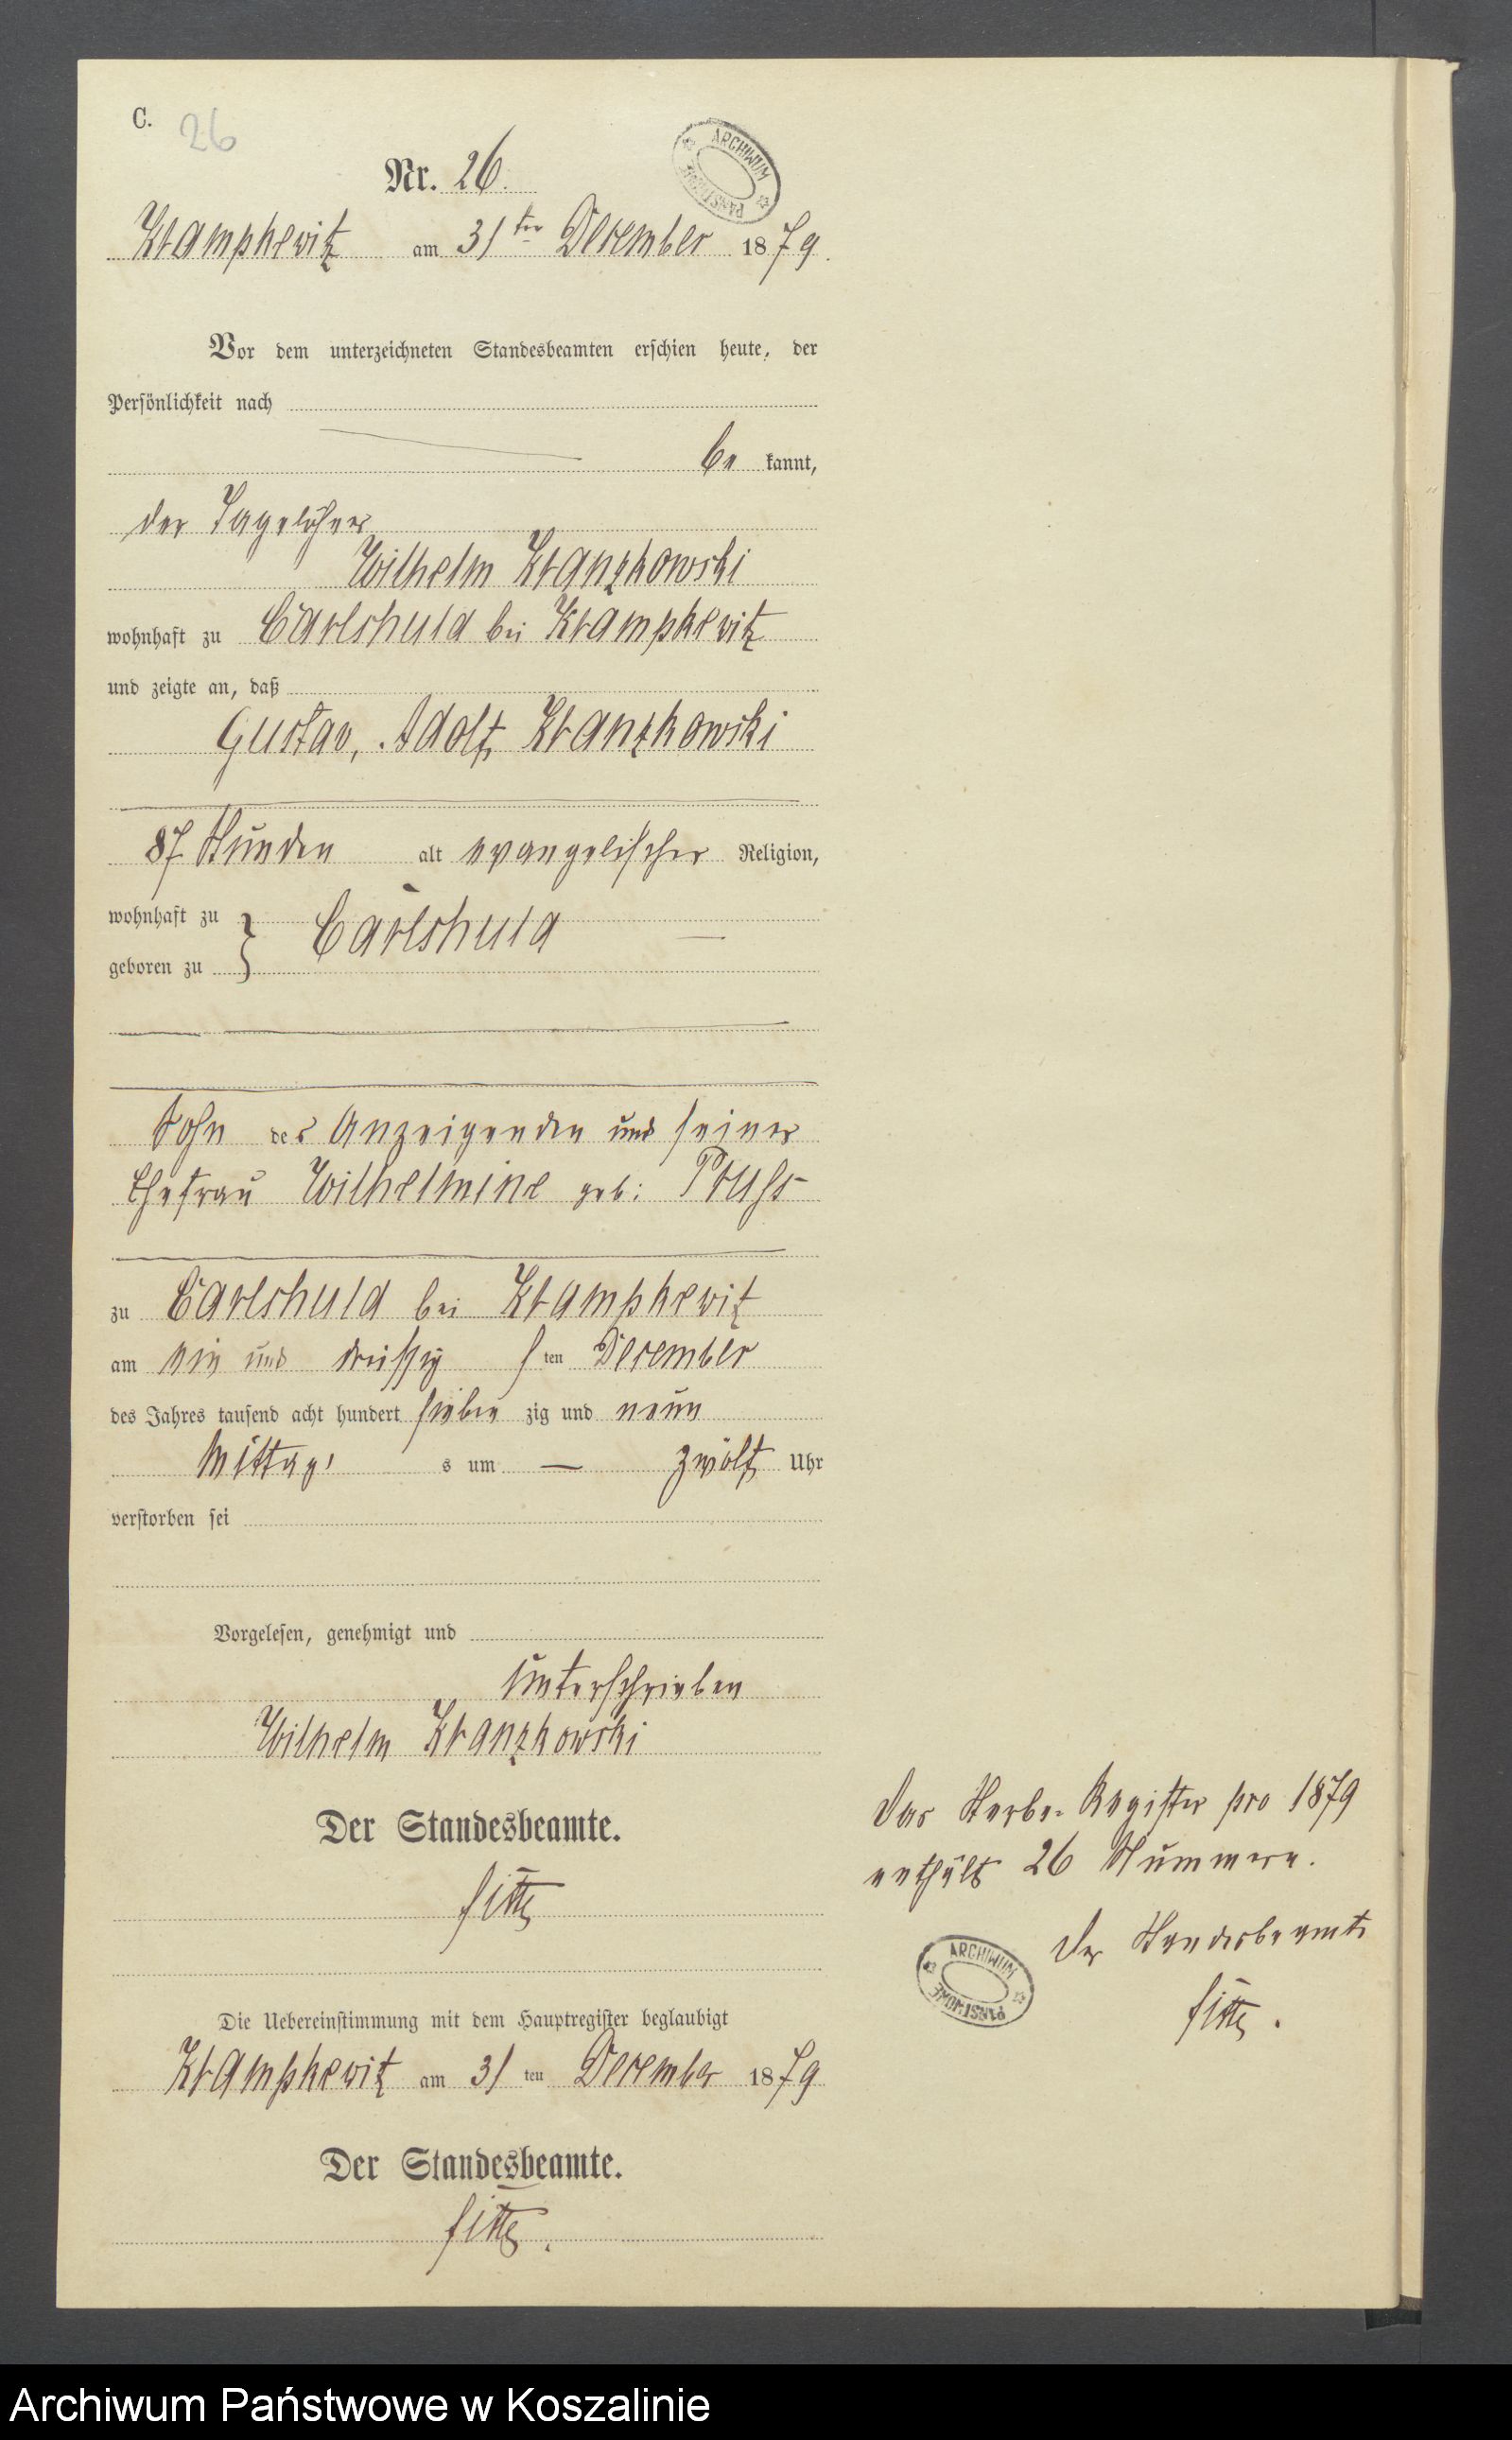 C. 26
Nr. 26.
ARCHIWUM PAŃSTWOWE
Krampkewitz am 31ten December 1879.
Vor dem unterzeichneten Standesbeamten erschien heute, der
Persönlichkeit nach
be kannt,
der Tagelöhner
Wilhelm Kranzkowski
wohnhaft zu Carlshuld bei Krampkewitz
und zeigte an, daß
Gustav, Adolf, Kranzkowski
87 Stunden alt evangelischer Religion,
wohnhaft zu } Carlshuld —
geboren zu
Sohn des Anzeigenden und seiner
Ehefrau Wilhelmine geb:
zu Carlshuld bei Krampkewitz
am ein und dreißig sten December
des Jahres tausend acht hundert sieben zig und neun
Mittag s um — zwölf Uhr
verstorben sei
Vorgelesen, genehmigt und
unterschrieben
Wilhelm Kranzkowski
Der Standesbeamte.
Die Uebereinstimmung mit dem Hauptregister beglaubigt
Krampkewitz am 31 ten December 1879
Der Standesbeamte.
Das Sterbe-Register pro 1879
enthält 26 Nummern.
Der Standesbeamte
ARCHIWUM PAŃSTWOWE
Archiwum Państwowe w Koszalinie